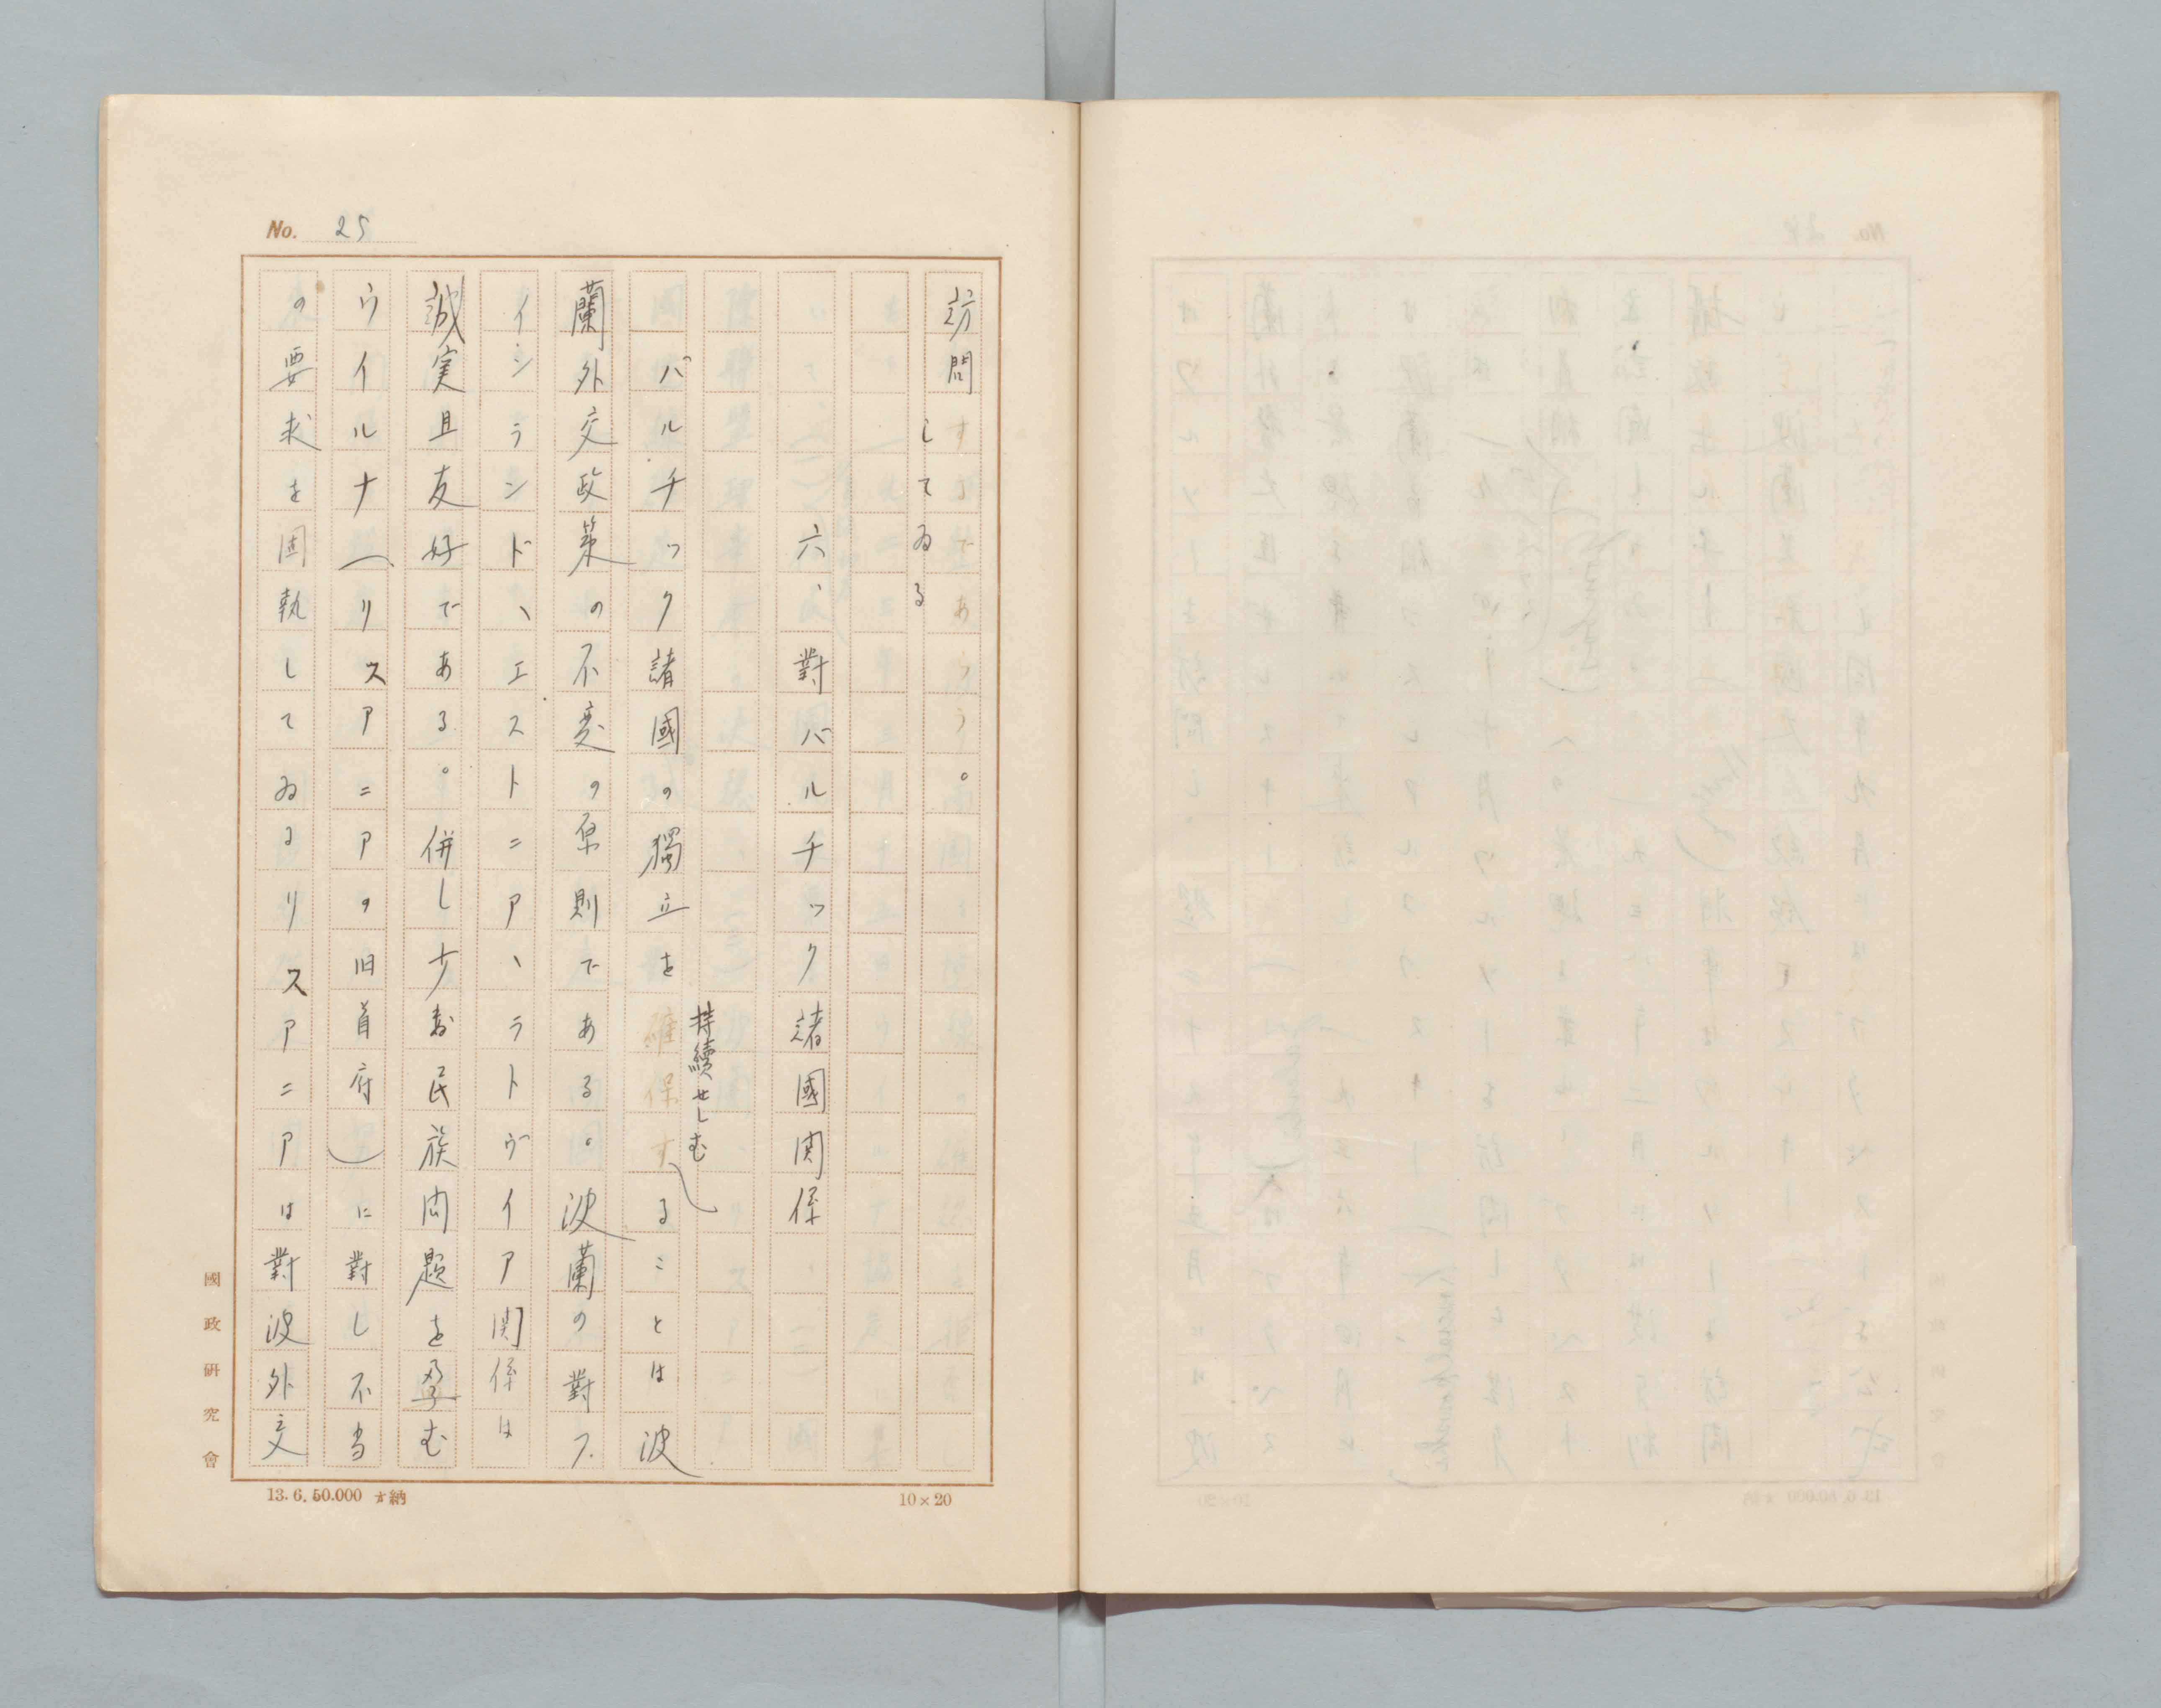 No. 25
訪問するであらう。
してゐる
六、對バルチック諸國関係
バルチック諸國の獨立を確保することは波
持続せしむ
蘭外交政策の不変の原則である。波蘭の對フ
インランド、エストニア、ラトヴイア関係は
誠実且友好である。併し少数民族問題を孕む
ウイルナ（リスアニアの旧首府）に對し不当
の要求を固執してゐるリスアニアは對波外交
國政研究會
13.6.50.000 納
10×20